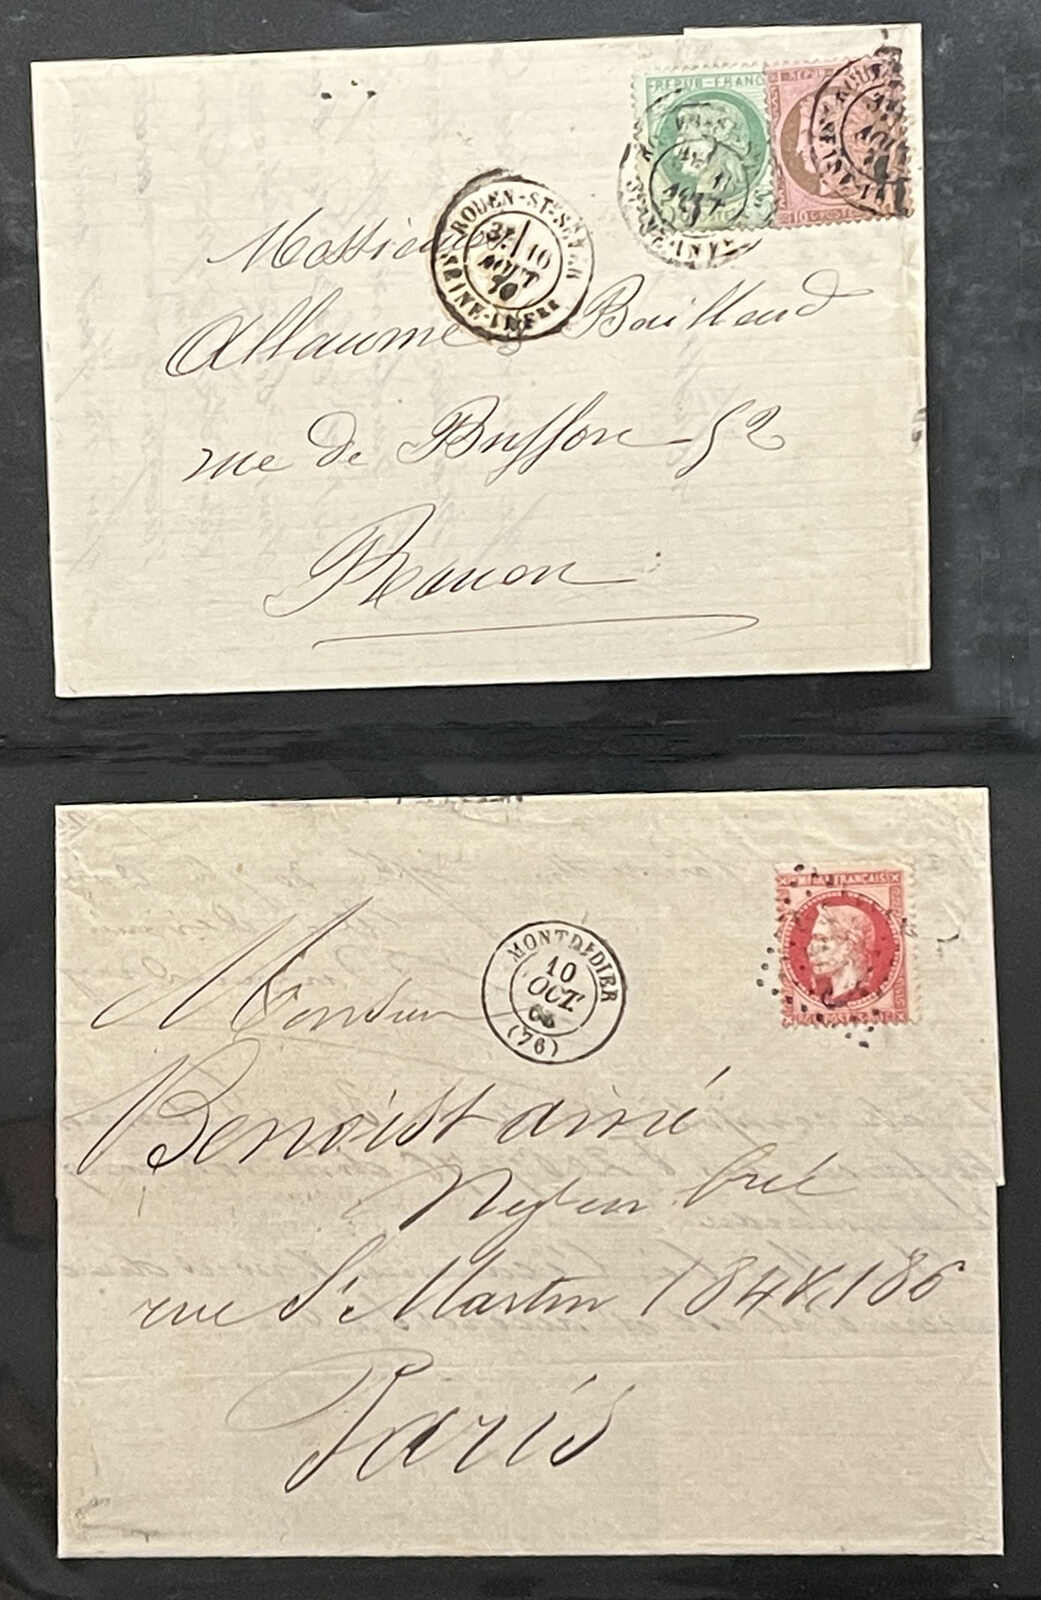 REPUB · FRANC
REPUB
10 C POSTES
ROUEN-ST-SEVER
3E / 10
AOUT
SEINE-INFRE
Messieurs
Allaume & Baillard
rue de Buffon 52
Rouen
FRANÇAIS
MONTDIDIER
10
OCT.
(76)
Monsieur
Benoist aîné
rue St Martin 184 & 186
Paris